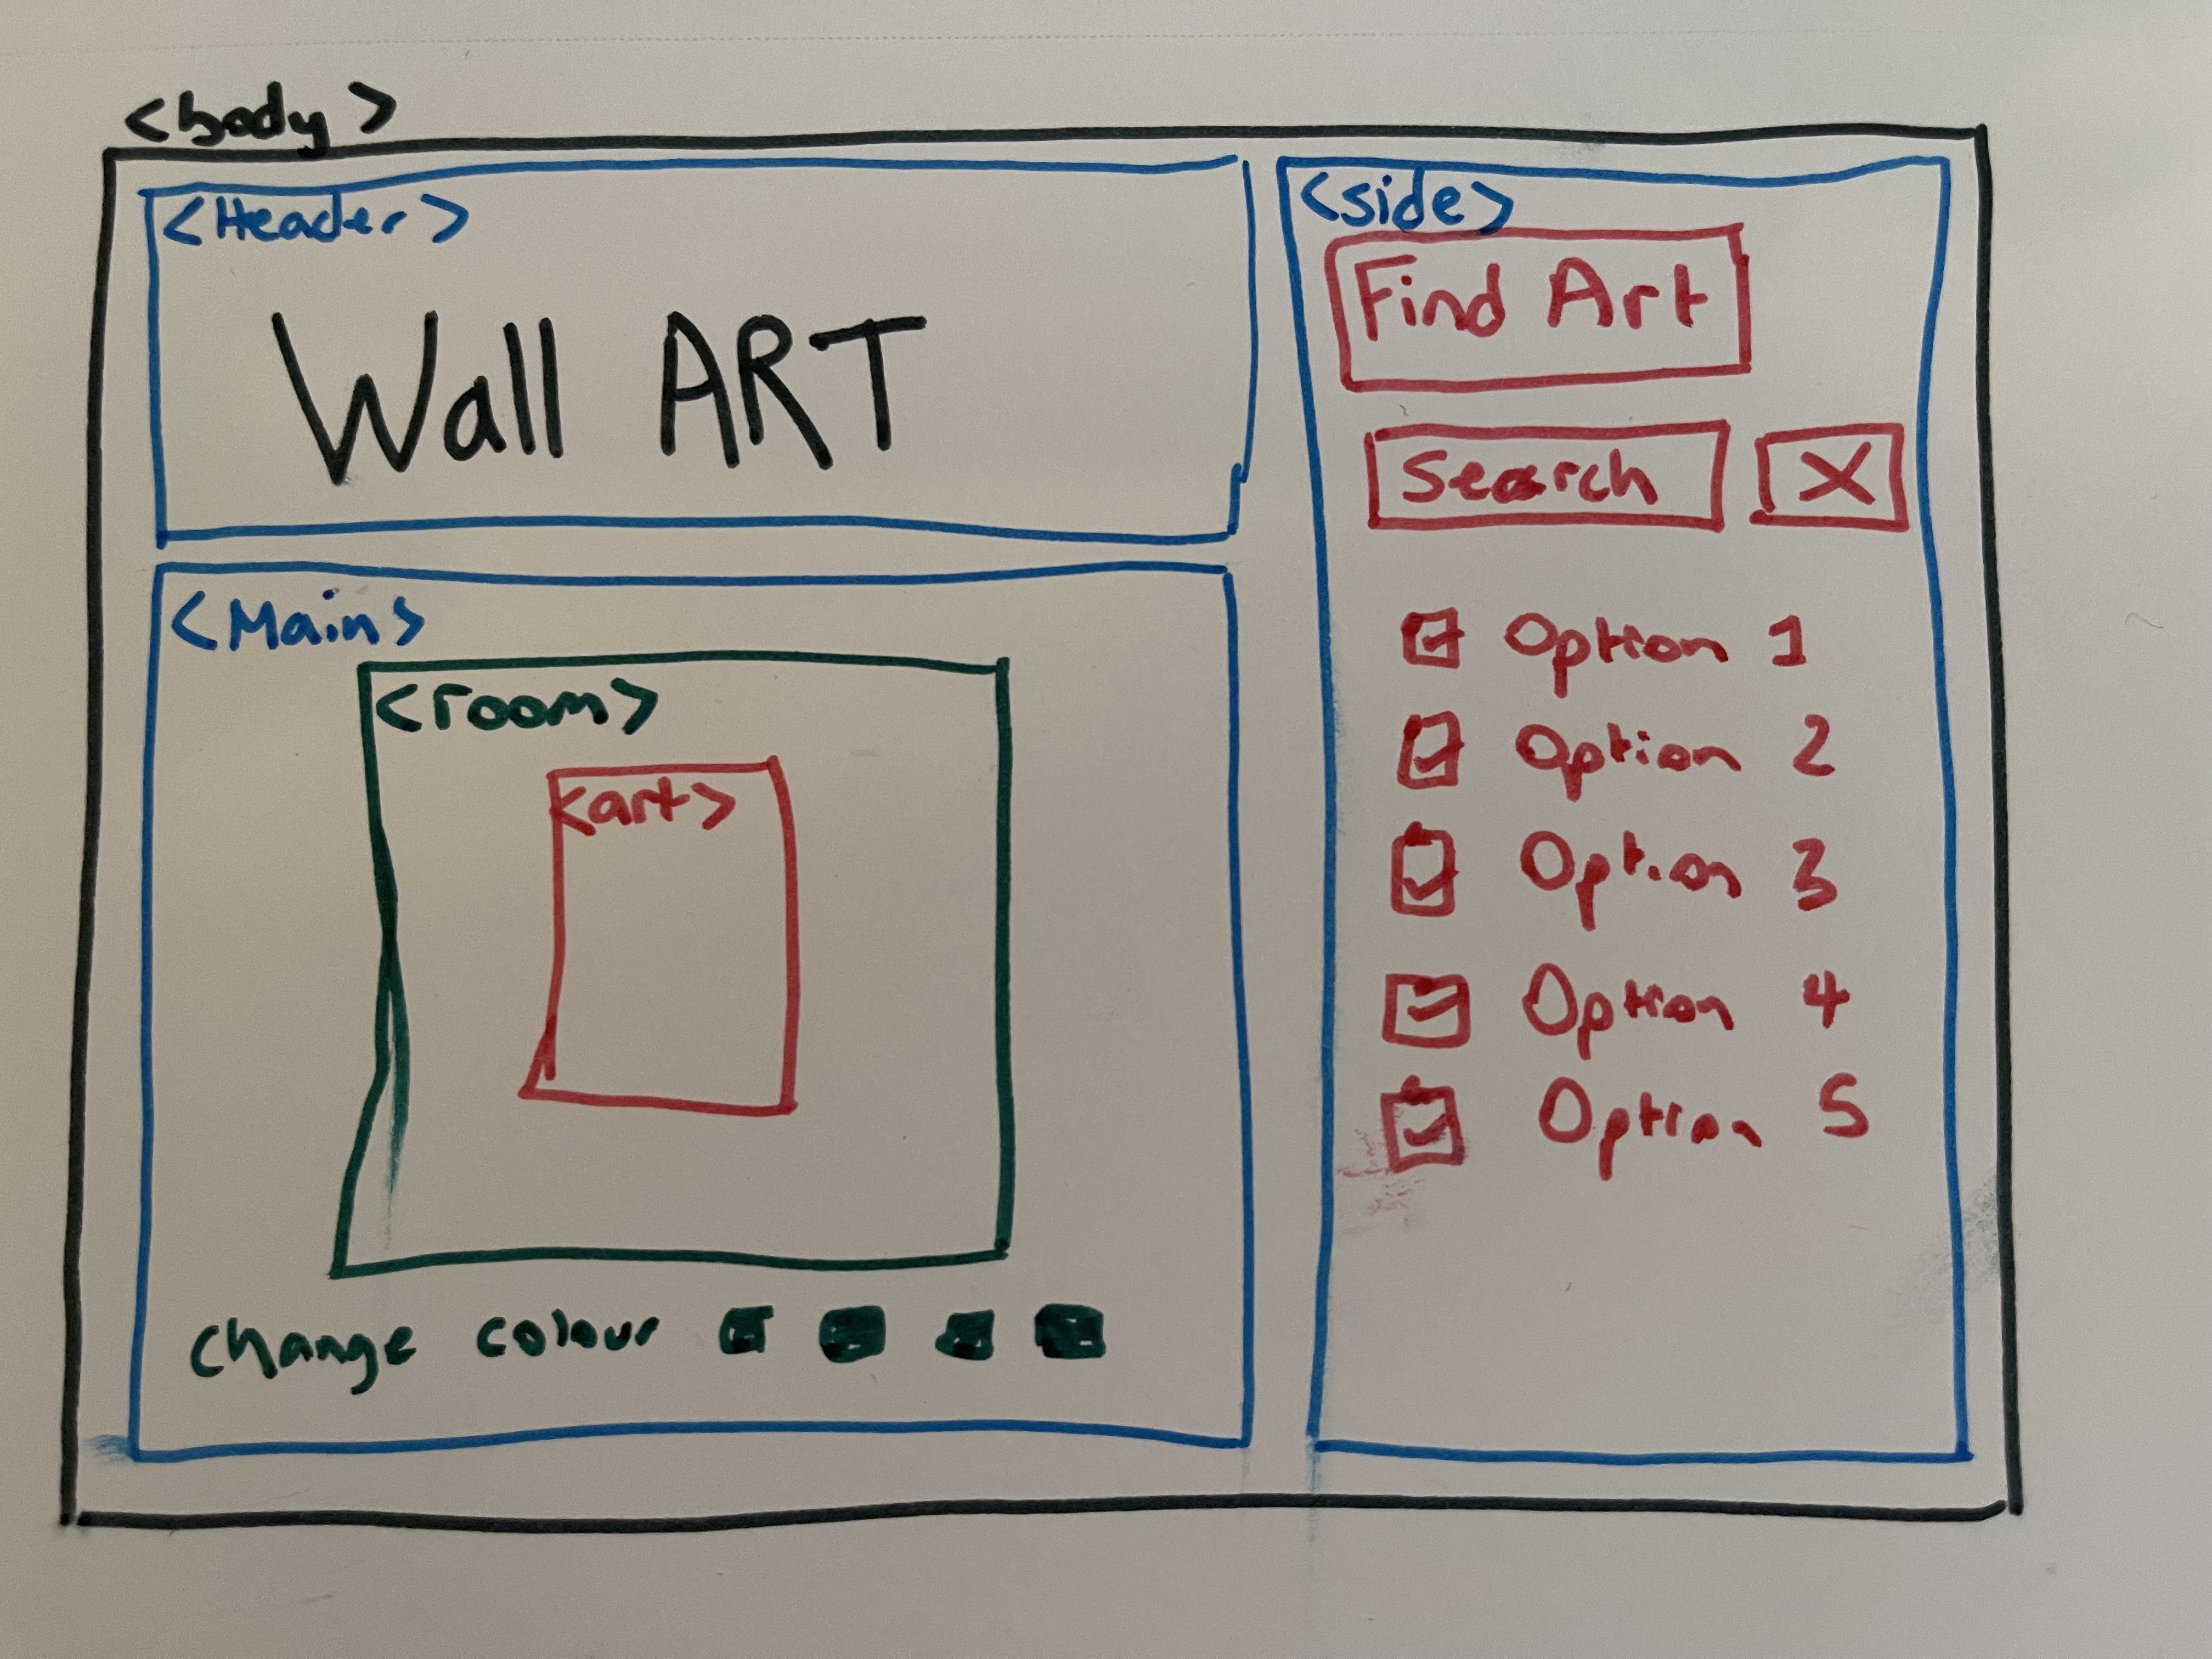 <body>
<Header>
Wall ART
<Main>
<room>
<art>
Change colour
<side>
Find Art
Search X
Option 1
Option 2
Option 3
Option 4
Option 5